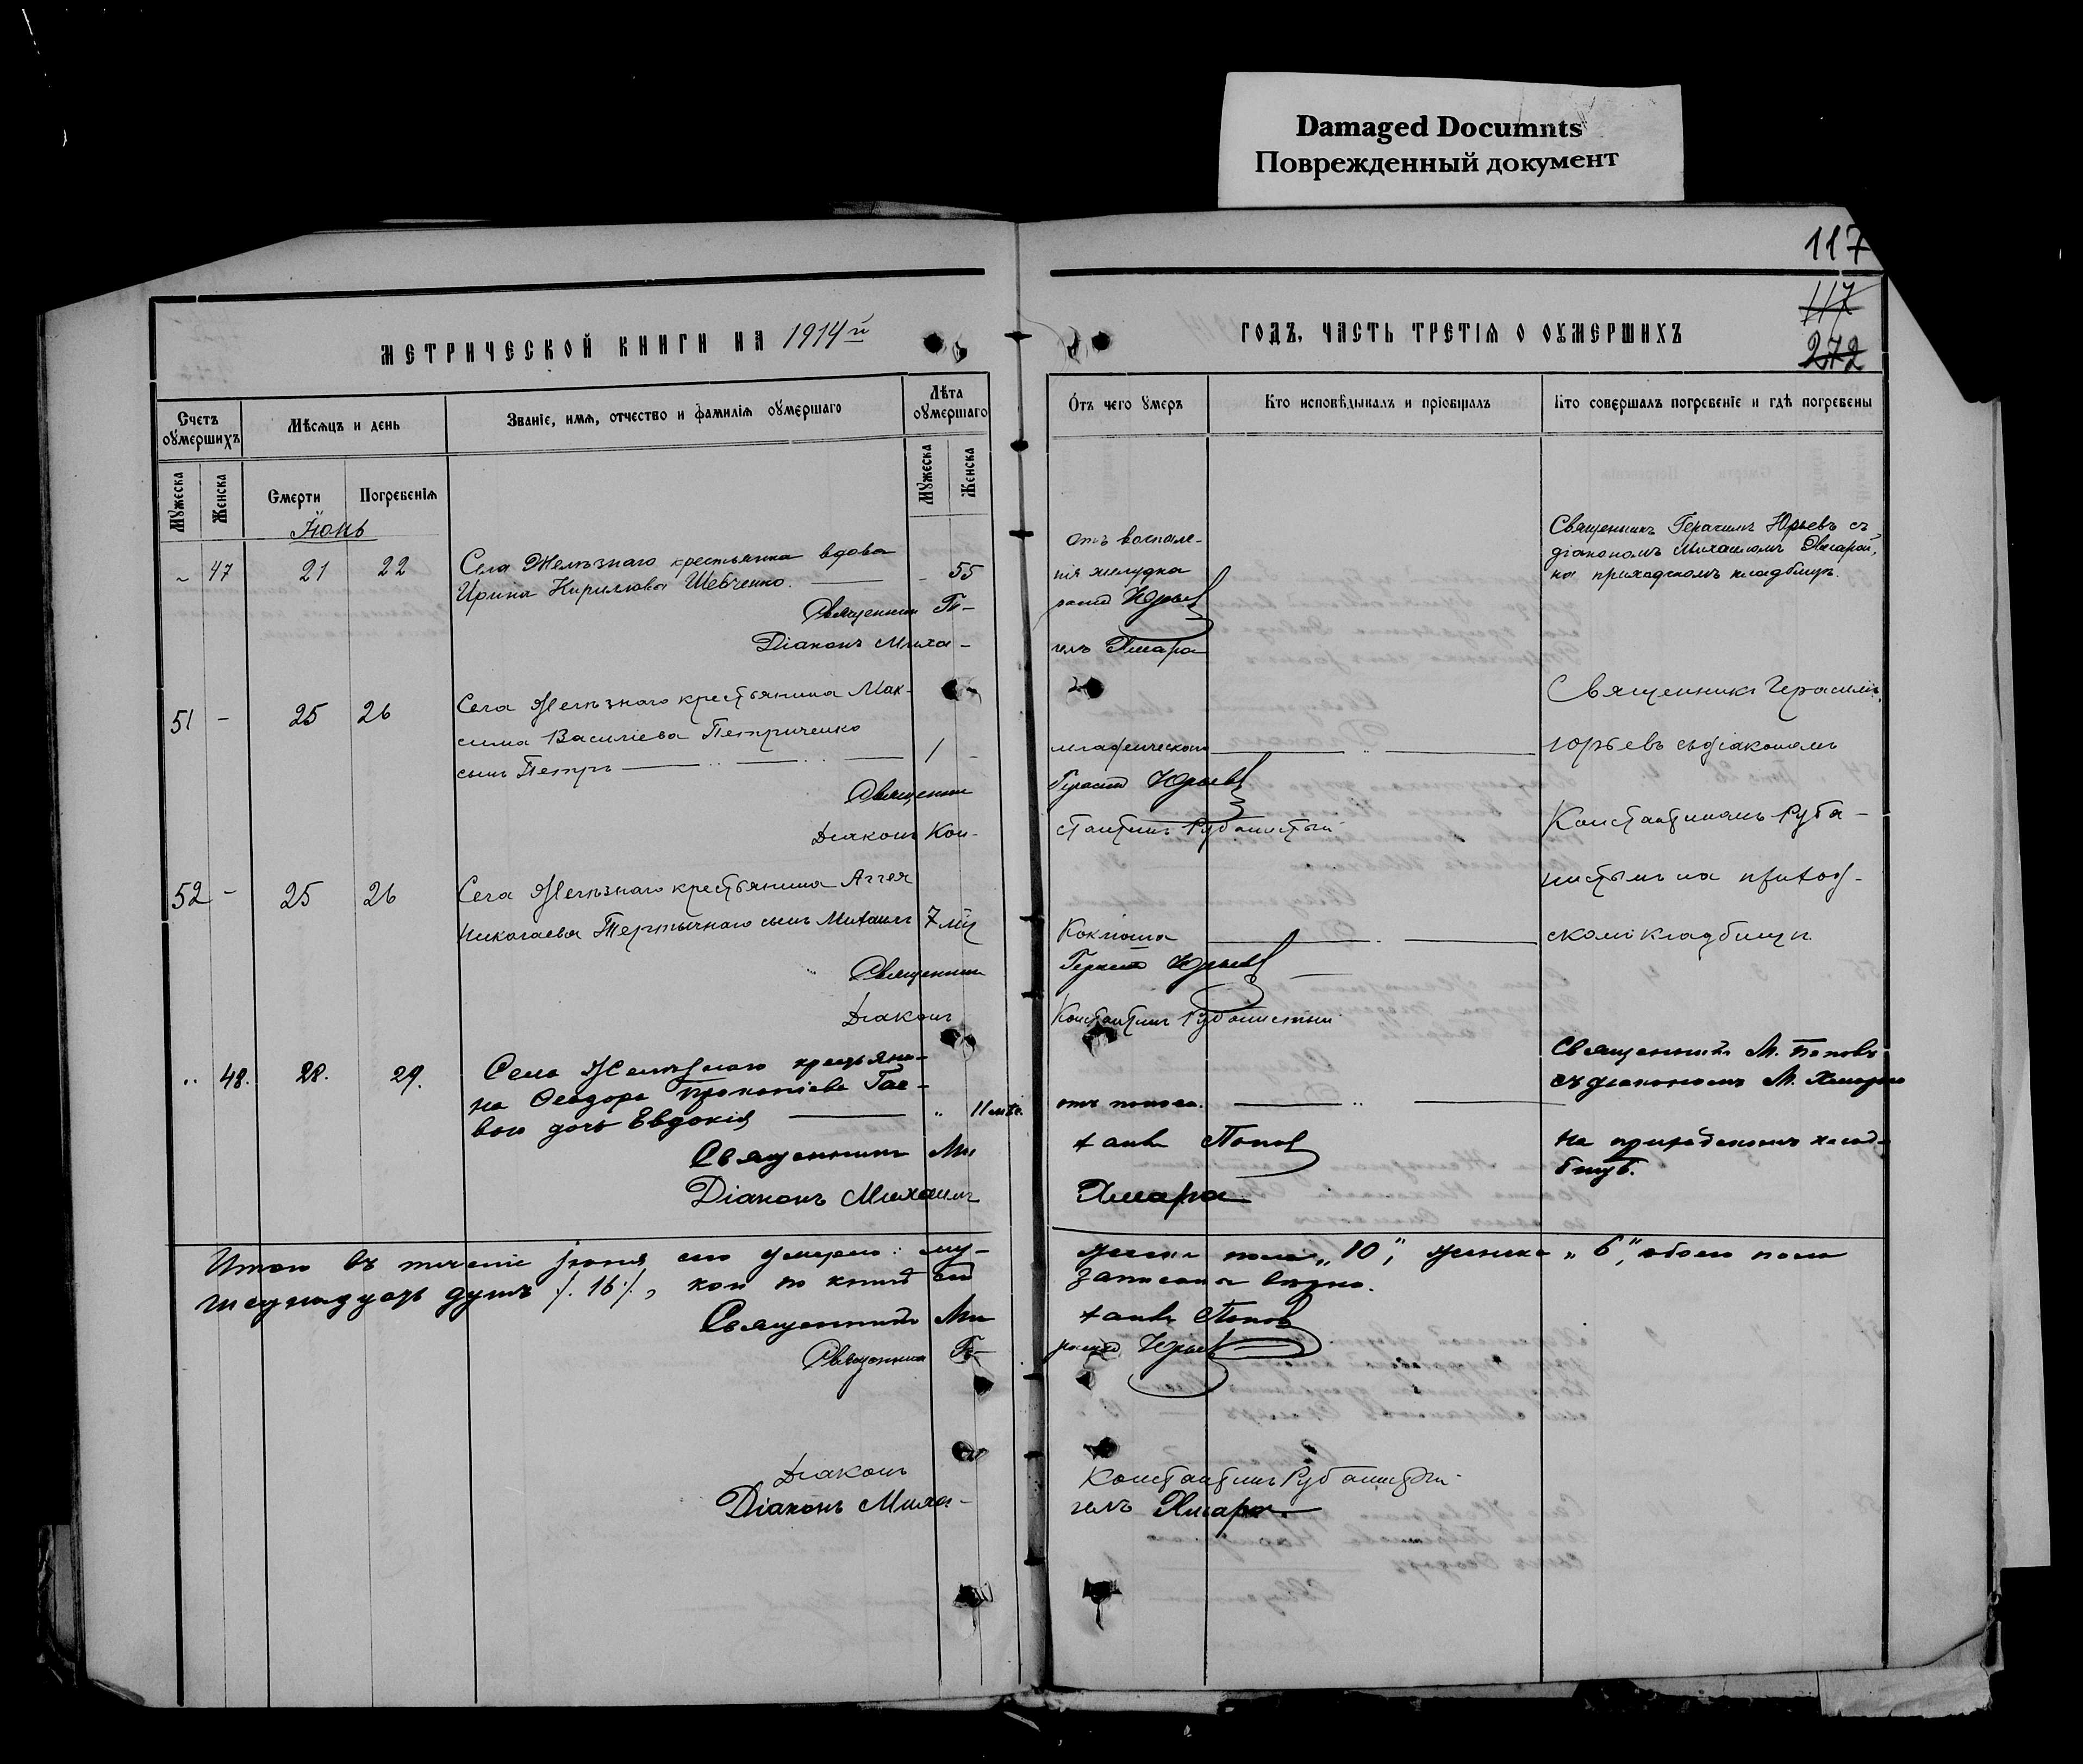 Damaged Documnts
Поврежденный документ
117
117
272
МЕТРИЧЕСКОЙ КНИГИ НА 1914й
ГОДЪ, ЧАСТЬ ТРЕТІЯ О ОУМЕРШИХЪ
Счетъ оумершихъ
Мѣсяцъ и день
Званіе, имя, отчество и фамилія оумершаго
Лѣта оумершаго
Отъ чего умеръ
Кто исповѣдывалъ и пріобщалъ
Кто совершалъ погребеніе и гдѣ погребены
Мужеска
Женска
Смерти
Погребенія
Мужеска
Женска
Іюнь
47 21 22
Села Желѣзнаго крестьянка вдова
Ирина Кирилова Шевченко.
- 55
отъ воспале-
нія желудка
Священникъ Герасимъ Юрьевъ съ
діакономъ Михаиломъ Хмарой,
на приходскомъ кладбищѣ.
Священникъ Ге-
расимъ Юрьевъ
Діаконъ Миха-
илъ Хмара
51 - 25 26
Села Желѣзнаго крестьянина Мак-
сима Василіева Петриченко
сынъ Петръ
1 -
младенческой
Священникъ Герасимъ
Юрьевъ съ діакономъ
Константиномъ Руба-
нистымъ на приход-
скомъ кладбищѣ.
Священникъ
Герасимъ Юрьевъ
Діаконъ Кон-
стантинъ Рубанистый
52 - 25 26
Села Желѣзнаго крестьянина Аггея
Николаева Тертычнаго сынъ Михаилъ
7 мѣс
Коклюша
Священникъ
Герасимъ Юрьевъ
Діаконъ
Константинъ Рубанистый
48. 28. 29.
Села Желѣзнаго крестьяни-
на Ѳеодора Прокопіева
дочь Евдокія
11 мѣс.
отъ поноса.
Священникъ М. Поповъ
съ діакономъ М. Хмарою
на приходскомъ клад-
бищѣ.
Священникъ Ми
хаилъ Поповъ
Діаконъ Михаилъ
Хмара
Итого въ теченіе іюня сего умерло: му-
жеска пола „10", женска „6", обоего пола
шеснадцать душъ /.16./, кои по книгѣ сей
записаны вѣрно.
Священникъ Ми
хаилъ Поповъ
Священникъ Ге-
расимъ Юрьевъ
Діаконъ
Константинъ Рубанистый
Діаконъ Миха-
илъ Хмара.